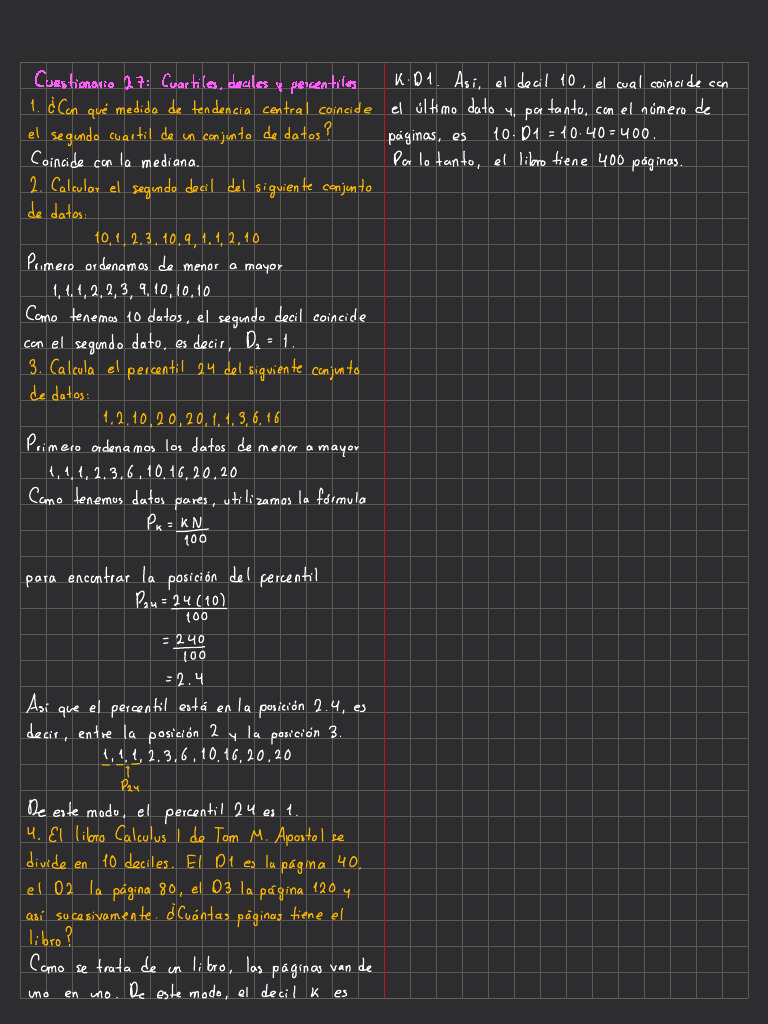 Cuestionario 27: Cuartiles, deciles y percentiles
1. ¿Con qué medida de tendencia central coincide
el segundo cuartil de un conjunto de datos?
Coincide con la mediana.
2. Calcular el segundo decil del siguiente conjunto
de datos:
10,1,2,3,10,9,1,1,2,10
Primero ordenamos de menor a mayor
1,1,1,2,2,3,9,10,10,10
Como tenemos 10 datos, el segundo decil coincide
con el segundo dato, es decir, D₂ = 1.
3. Calcula el percentil 24 del siguiente conjunto
de datos:
1,2,10,20,20,1,1,3,6,16
Primero ordenamos los datos de menor a mayor
1,1,1,2,3,6,10,16,20,20
Como tenemos datos pares, utilizamos la fórmula
Pₖ = kN
100
para encontrar la posición del percentil
P₂₄ = 24(10)
100
= 240
100
= 2.4
Así que el percentil está en la posición 2.4, es
decir, entre la posición 2 y la posición 3.
1,1,1,2,3,6,10,16,20,20
↑
P₂₄
De este modo, el percentil 24 es 1.
4. El libro Calculus I de Tom M. Apostol se
divide en 10 deciles. El D1 es la página 40,
el D2 la página 80, el D3 la página 120 y
así sucasivamente. ¿Cuántas páginas tiene el
libro?
Como se trata de un libro, las páginas van de
uno en uno. De este modo, el decil K es
K·D1. Así, el decil 10, el cual coincide con
el último dato y, por tanto, con el número de
páginas, es 10·D1 = 10·40 = 400.
Por lo tanto, el libro tiene 400 páginas.